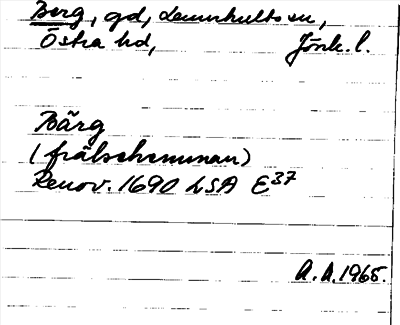 Berg, gd, Lemnhults sn,
Östra hd, Jönk. l.
Bärg
(frälsehemman)
Renov. 1690 LSA E37
A. A. 1965.